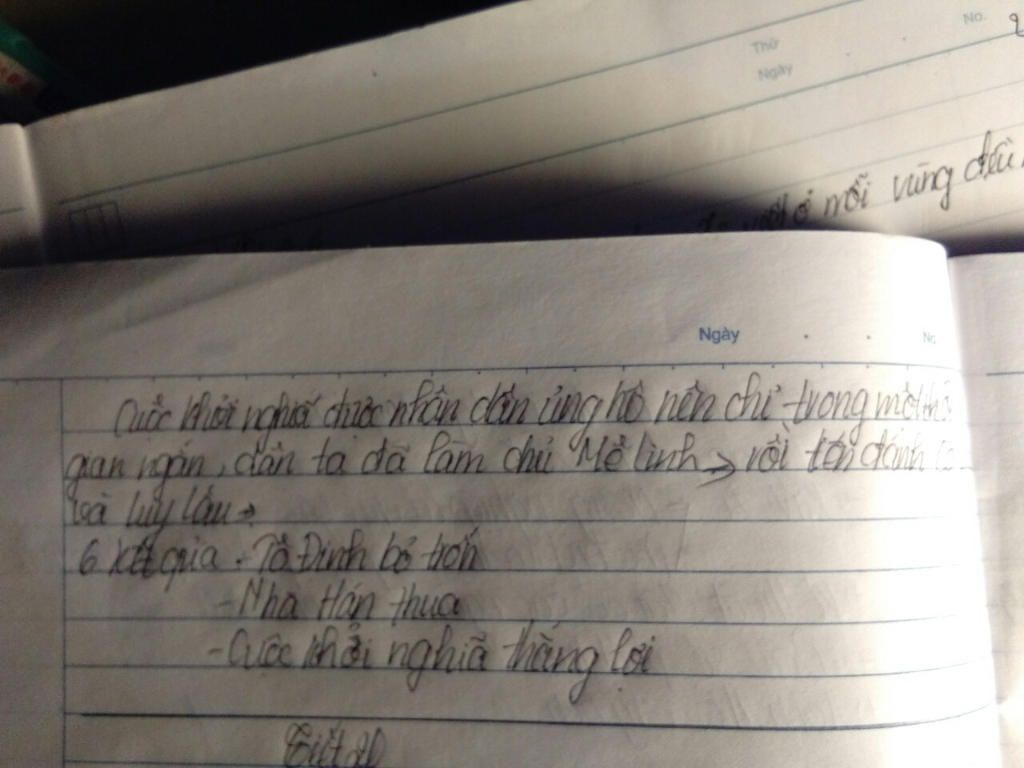 Thứ
No.
Ngày
mỗi vùng đều
Ngày
No
Cuộc khởi nghĩa được nhân dân ủng hộ nên chỉ trong một
gian ngắn, dân ta đã làm chủ Mê Linh → rồi tấn đánh
và luy lâu →
6 Kết quả : - Tô Định bỏ trốn
- Nhà Hán thua
- Cuộc khởi nghĩa thắng lợi